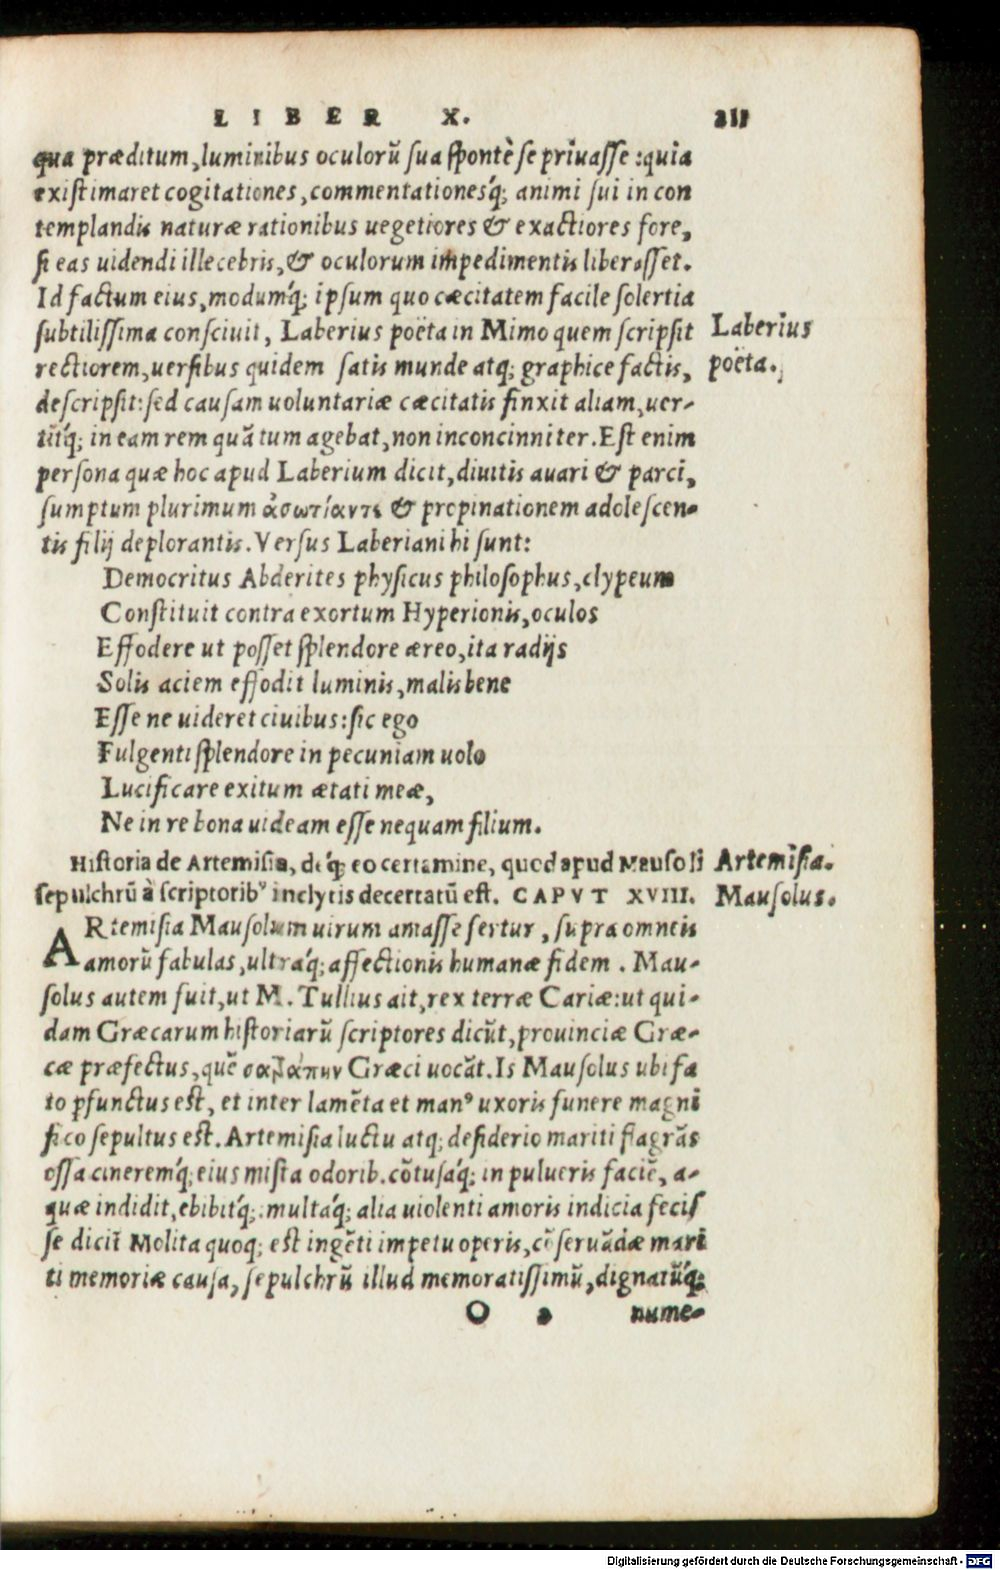 LIBER X. 211
qua præditum, luminibus oculorũ sua spontè se priuasse: quia
existimaret cogitationes, commentationesq́; animi sui in con
templandis naturæ rationibus uegetiores & exactiores fore,
si eas uidendi illecebris, & oculorum impedimentis liberasset.
Id factum eius, modumq́; ipsum quo cæcitatem facile solertia
subtilissima consciuit, Laberius poëta in Mimo quem scripsit
Laberius
rectiorem, uersibus quidem satis munde atq; graphice factis,
poëta.
descripsit: sed causam uoluntariæ cæcitatis finxit aliam, uer-
titq́; in eam rem quã tum agebat, non inconcinniter. Est enim
persona quæ hoc apud Laberium dicit, diuitis auari & parci,
sumptum plurimum ἀσωτίαντε & propinationem adolescen-
tis filij deplorantis. Versus Laberiani hi sunt:
Democritus Abderites physicus philosophus, clypeum
Constituit contra exortum Hyperionis, oculos
Effodere ut posset splendore æreo, ita radijs
Solis aciem effodit luminis, malis bene
Esse ne uideret ciuibus: sic ego
Fulgenti splendore in pecuniam uolo
Lucificare exitum ætati meæ,
Ne in re bona uideam esse nequam filium.
Historia de Artemisia, deq́; eo certamine, quod apud Mausoli
Artemisia.
sepulchrũ à scriptoribꝰ inclytis decertatũ est. CAPVT XVIII.
Mausolus.
ARtemisia Mausolum uirum amasse fertur, supra omneis
amorũ fabulas, ultraq́; affectionis humanæ fidem. Mau-
solus autem fuit, ut M. Tullius ait, rex terræ Cariæ: ut qui-
dam Græcarum historiarũ scriptores dicũt, prouinciæ Græ-
cæ præfectus, quẽ σατράπην Græci uocãt. Is Mausolus ubi fa
to ꝑfunctus est, et inter lamẽta et manꝰ uxoris funere magni
fico sepultus est. Artemisia luctu atq; desiderio mariti flagrãs
ossa cineremq́; eius mista odorib. cõtusaq́; in pulueris faciẽ, a-
quæ indidit, ebibitq́;: multaq́; alia uiolenti amoris indicia fecis
se dicit̃ Molita quoq; est ingẽti impetu operis, cõseruãdæ mari
ti memoriæ causa, sepulchrũ illud memoratissimũ, dignatũq́;
O 2 nume-
Digitalisierung gefördert durch die Deutsche Forschungsgemeinschaft - DFG